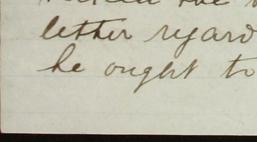 letter regard
he ought to